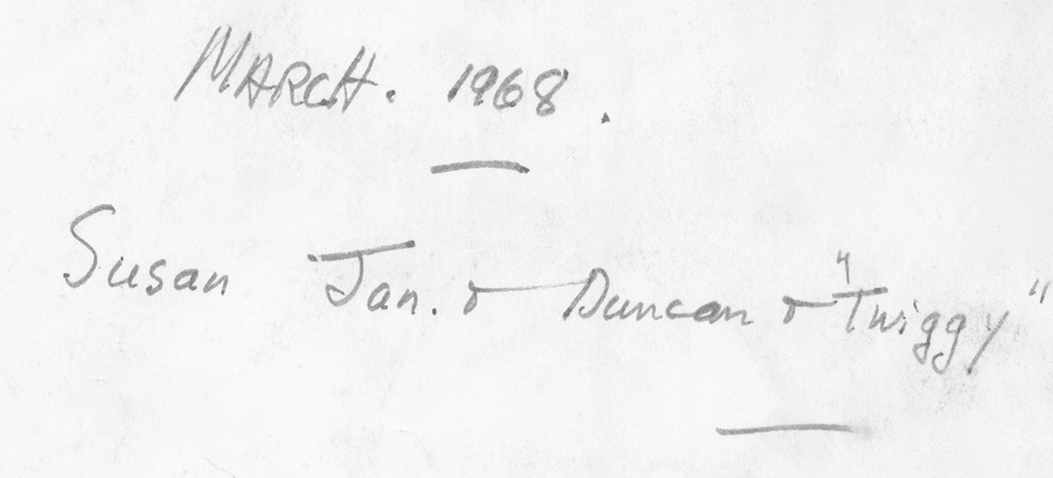 MARCH. 1968.
Susan Jan. & Duncan & "Twiggy"